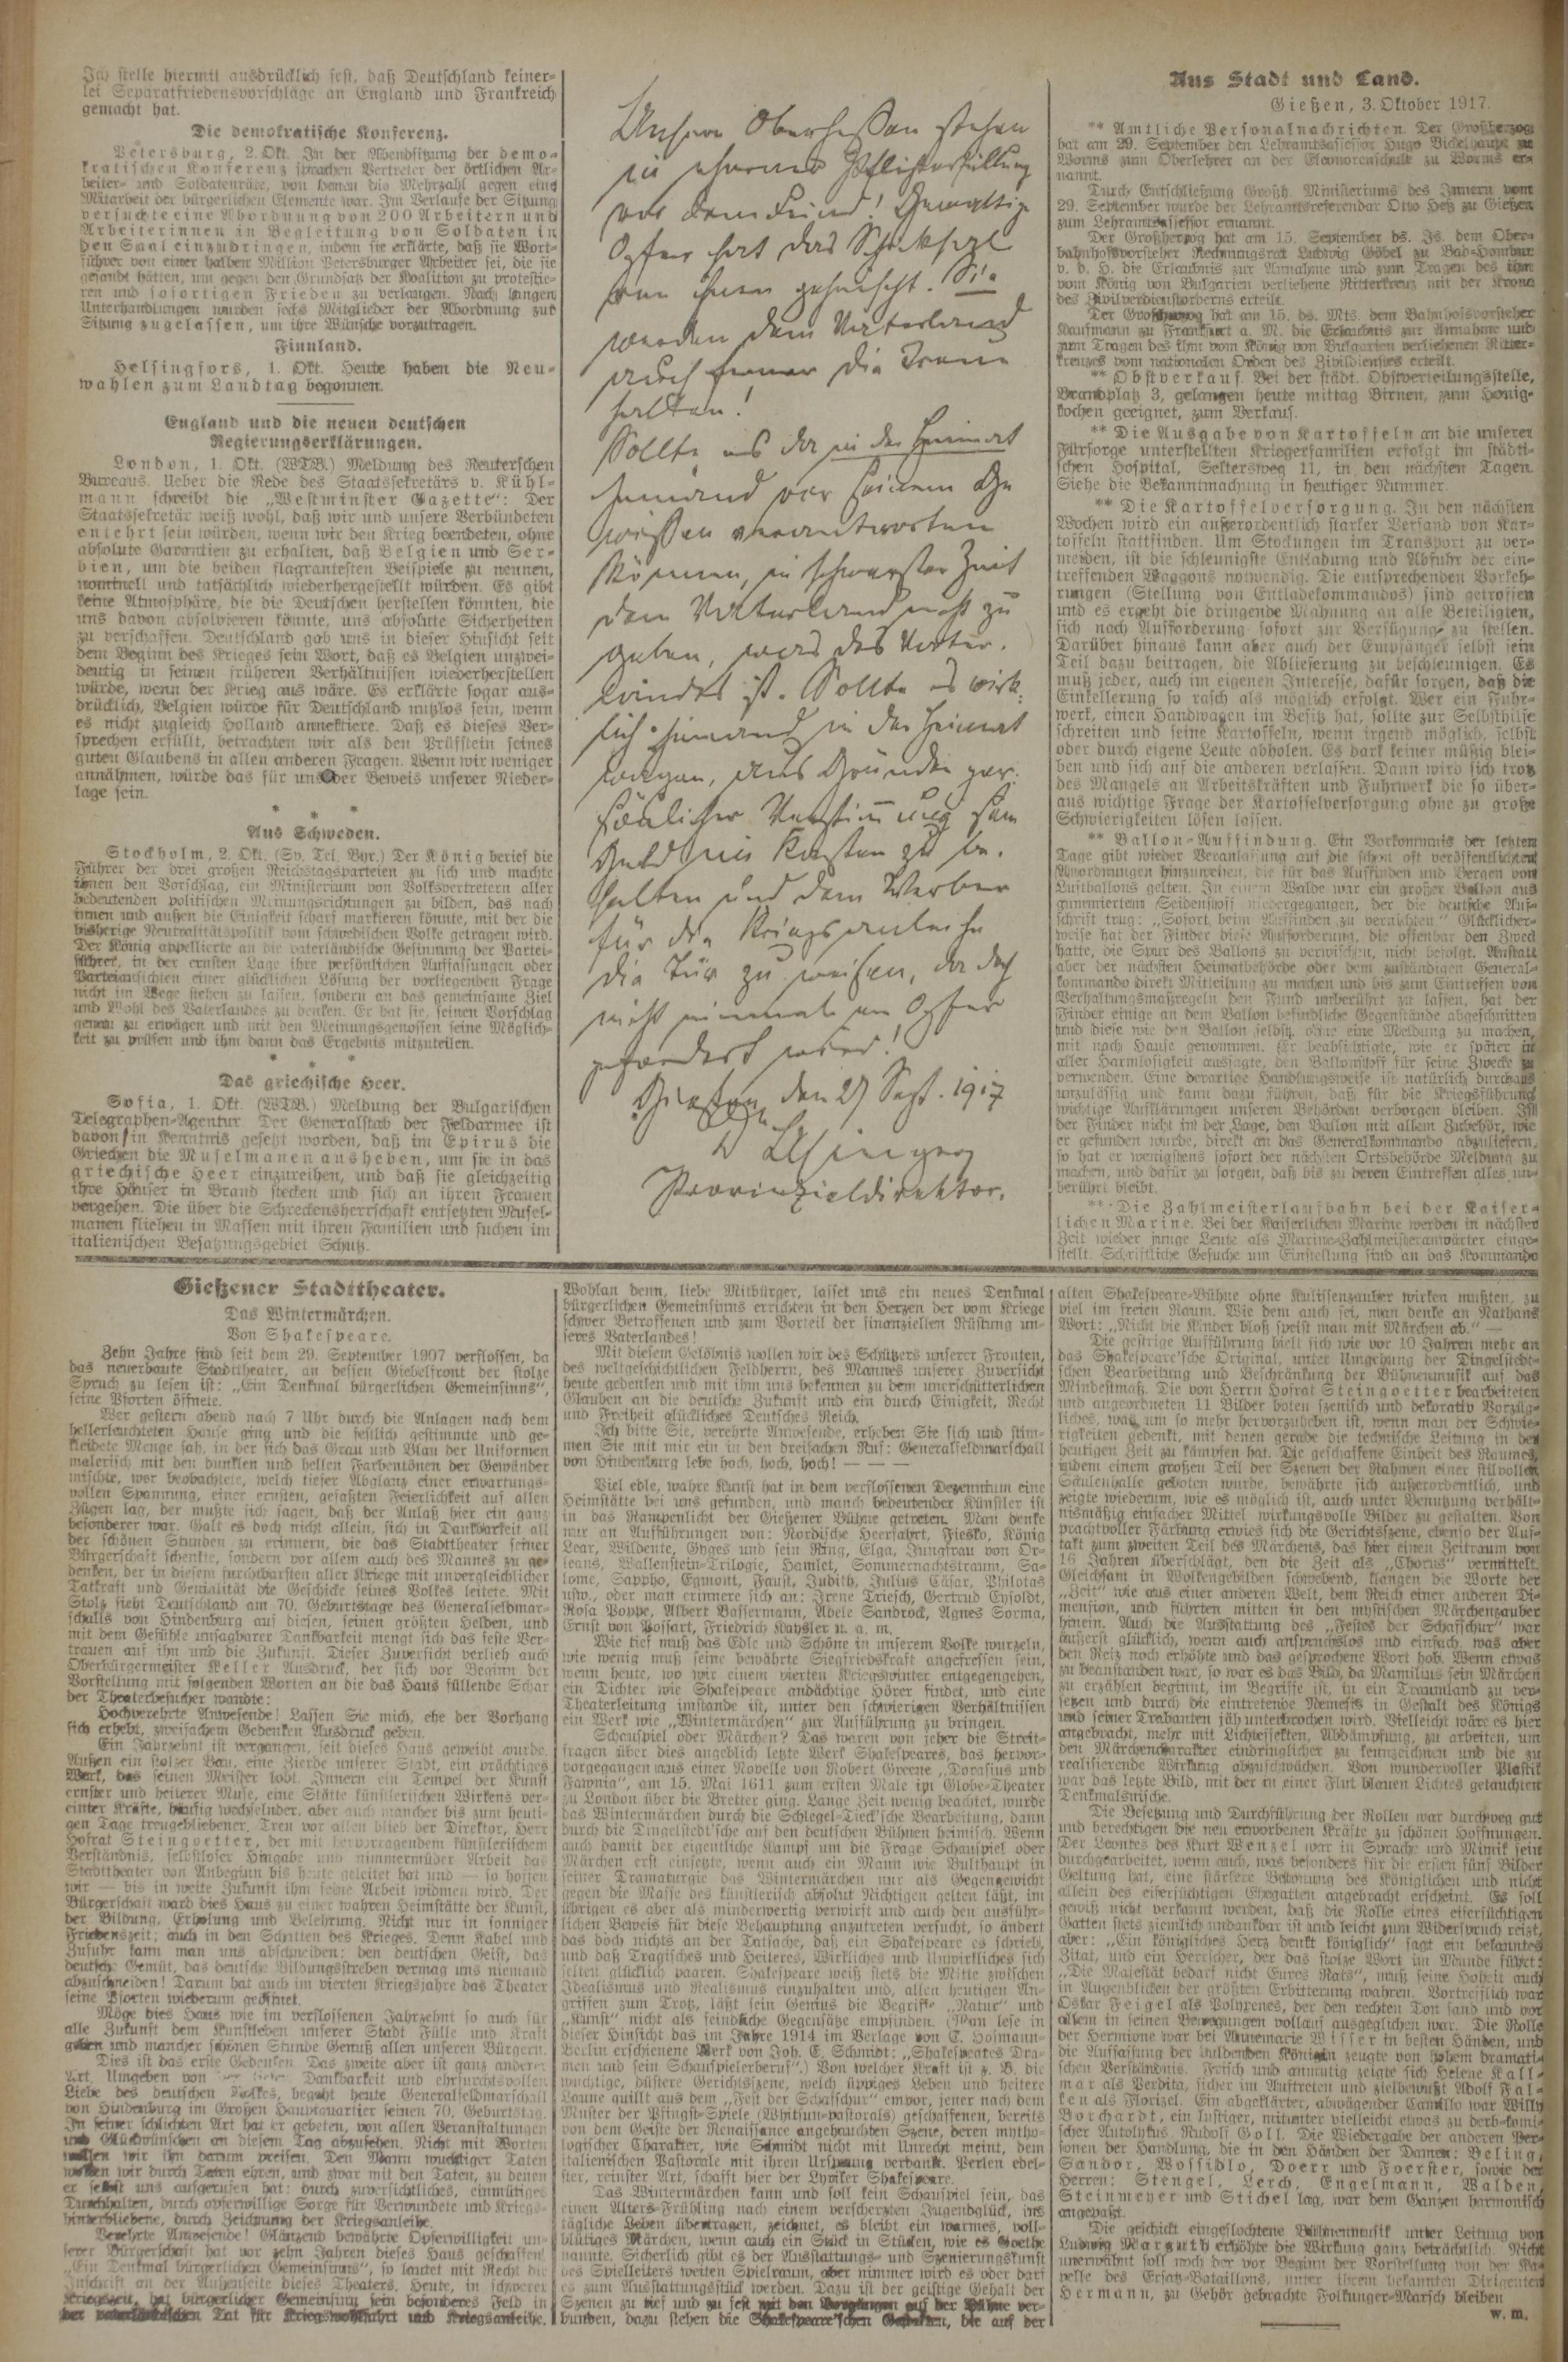 Ich stelle hiermit ausdrücklich fest, daß Deutschland keiner-
lei Separatfriedensvorschläge an England und Frankreich
gemacht hat.
Die demokratische Konferenz.
Petersburg, 2. Okt. In der Abendsitzung der demo-
kratischen Konferenz sprachen Vertreter der örtlichen Ar-
beiter- und Soldatenräte, von denen die Mehrzahl gegen eine
Mitarbeit der bürgerlichen Elemente war. Im Verlaufe der Sitzung
versuchte eine Abordnung von 200 Arbeitern und
Arbeiterinnen in Begleitung von Soldaten in
den Saal einzudringen, indem sie erklärte, daß sie Wort-
führer von einer halben Million Petersburger Arbeiter sei, die sie
gesandt hätten, um gegen den Grundsatz der Koalition zu protestie-
ren und sofortigen Frieden zu verlangen. Nach langen
Unterhandlungen wurden sechs Mitglieder der Abordnung zur
Sitzung zugelassen, um ihre Wünsche vorzutragen.
Finnland.
Helsingfors, 1. Okt. Heute haben die Neu-
wahlen zum Landtag begonnen.
England und die neuen deutschen
Regierungserklärungen.
London, 1. Okt. (WTB.) Meldung des Reuterschen
Bureaus. Ueber die Rede des Staatssekretärs v. Kühl-
mann schreibt die „Westminster Gazette“: Der
Staatssekretär weiß wohl, daß wir und unsere Verbündeten
entehrt sein würden, wenn wir den Krieg beendeten, ohne
absolute Garantien zu erhalten, daß Belgien und Ser-
bien, um die beiden flagrantesten Beispiele zu nennen,
nominell und tatsächlich wiederhergestellt würden. Es gibt
keine Atmosphäre, die die Deutschen herstellen könnten, die
uns davon absolvieren könnte, uns absolute Sicherheiten
zu verschaffen. Deutschland gab uns in dieser Hinsicht seit
dem Beginn des Krieges sein Wort, daß es Belgien unzwei-
deutig in seinen früheren Verhältnissen wiederherstellen
würde, wenn der Krieg aus wäre. Es erklärte sogar aus-
drücklich, Belgien würde für Deutschland nutzlos sein, wenn
es nicht zugleich Holland annektiere. Daß es dieses Ver-
sprechen erfüllt, betrachten wir als den Prüfstein seines
guten Glaubens in allen anderen Fragen. Wenn wir weniger
annähmen, würde das für uns der Beweis unserer Nieder-
lage sein.
* * *
Aus Schweden.
Stockholm, 2. Okt. (Sv. Tel. Byr.) Der König berief die
Führer der drei großen Reichstagsparteien zu sich und machte
ihnen den Vorschlag, ein Ministerium von Volksvertretern aller
bedeutenden politischen Meinungsrichtungen zu bilden, das nach
innen und außen die Einigkeit scharf markieren könnte, mit der die
bisherige Neutralitätspolitik vom schwedischen Volke getragen wird.
Der König appellierte an die vaterländische Gesinnung der Partei-
führer, in der ernsten Lage ihre persönlichen Auffassungen oder
Parteiansichten einer glücklichen Lösung der vorliegenden Frage
nicht im Wege stehen zu lassen, sondern an das gemeinsame Ziel
und Wohl des Vaterlandes zu denken. Er bat sie, seinen Vorschlag
genau zu erwägen und mit den Meinungsgenossen seine Möglich-
keit zu prüfen und ihm dann das Ergebnis mitzuteilen.
* * *
Das griechische Heer.
Sofia, 1. Okt. (WTB.) Meldung der Bulgarischen
Telegraphen-Agentur. Der Generalstab der Feldarmee ist
davon in Kenntnis gesetzt worden, daß im Epirus die
Griechen die Muselmanen ausheben, um sie in das
griechische Heer einzureihen, und daß sie gleichzeitig
ihre Häuser in Brand stecken und sich an ihren Frauen
vergehen. Die über die Schreckensherrschaft entsetzten Musel-
manen fliehen in Massen mit ihren Familien und suchen im
italienischen Besatzungsgebiet Schutz.
Unsere Oberhessen stehen
in eherner Pflichterfüllung
vor dem Feind! Gewaltige
Opfer hat das Schicksal
von ihnen geheischt. Sie
werden dem Vaterland
auch ferner die Treue
halten!
Sollte es da in der Heimat
jemand vor seinem Ge
wissen verantworten
können, in schwerster Zeit
dem Vaterland nicht zu
geben, was des Vater-
landes ist. Sollte es wirk-
lich jemand in der Heimat
wagen, aus Gründen per-
sönlicher Verstimmung sein
Geld im Kasten zu be-
halten und dem Werber
für die Kriegsanleihe
die Tür zu weisen, da doch
nicht einmal ein Opfer
gefordert wird!
Gießen, den 27 Sept. 1917
Dr Usinger
Provinzialdirektor.
Aus Stadt und Land.
Gießen, 3. Oktober 1917.
** Amtliche Personalnachrichten. Der Großherzog
hat am 29. September den Lehramtsassessor Hugo Bickelhaupt zu
Worms zum Oberlehrer an der Eleonorenschule zu Worms er-
nannt.
Durch Entschließung Großh. Ministeriums des Innern vom
29. September wurde der Lehramtsreferendar Otto Heß zu Gießen
zum Lehramtsassessor ernannt.
Der Großherzog hat am 15. September ds. Js. dem Ober-
bahnhofsvorsteher Rechnungsrat Ludwig Göbel zu Bad-Homburg
v. d. H. die Erlaubnis zur Annahme und zum Tragen des ihm
vom König von Bulgarien verliehene Ritterkreuz mit der Krone
des Zivilverdienstordens erteilt.
Der Großherzog hat am 15. ds. Mts. dem Bahnhofsvorsteher
Kaufmann zu Frankfurt a. M. die Erlaubnis zur Annahme und
zum Tragen des ihm vom König von Bulgarien verliehenen Ritter-
kreuzes vom nationalen Orden des Zivildienstes erteilt.
** Obstverkauf. Bei der städt. Obstverteilungsstelle,
Brandplatz 3, gelangen heute mittag Birnen, zum Honig-
kochen geeignet, zum Verkauf.
** Die Ausgabe von Kartoffeln an die unserer
Fürsorge unterstellten Kriegerfamilien erfolgt im städti-
schen Hospital, Seltersweg 11, in den nächsten Tagen.
Siehe die Bekanntmachung in heutiger Nummer.
** Die Kartoffelversorgung. In den nächsten
Wochen wird ein außerordentlich starker Versand von Kar-
toffeln stattfinden. Um Stockungen im Transport zu ver-
meiden, ist die schleunigste Entladung und Abfuhr der ein-
treffenden Waggons notwendig. Die entsprechenden Vorkeh-
rungen (Stellung von Entladekommandos) sind getroffen
und es ergeht die dringende Mahnung an alle Beteiligten,
sich nach Aufforderung sofort zur Verfügung zu stellen.
Darüber hinaus kann aber auch der Empfänger selbst sein
Teil dazu beitragen, die Ablieferung zu beschleunigen. Es
muß jeder, auch im eigenen Interesse, dafür sorgen, daß die
Einkellerung so rasch als möglich erfolgt. Wer ein Fuhr-
werk, einen Handwagen im Besitz hat, sollte zur Selbsthilfe
schreiten und seine Kartoffeln, wenn irgend möglich, selbst
oder durch eigene Leute abholen. Es darf keiner müßig blei-
ben und sich auf die anderen verlassen. Dann wird sich trotz
des Mangels an Arbeitskräften und Fuhrwerk die so über-
aus wichtige Frage der Kartoffelversorgung ohne zu große
Schwierigkeiten lösen lassen.
** Ballon-Auffindung. Ein Vorkommnis der letzten
Tage gibt wieder Veranlassung auf die schon oft veröffentlichten
Anordnungen hinzuweisen, die für das Auffinden und Bergen von
Luftballons gelten. In einem Walde war ein großer Ballon aus
gummiertem Seidenstoff niedergegangen, der die deutsche Auf-
schrift trug: „Sofort beim Auffinden zu vernichten“ Glücklicher-
weise hat der Finder diese Aufforderung, die offenbar den Zweck
hatte, die Spur des Ballons zu verwischen, nicht befolgt. Anstatt
aber der nächsten Heimatbehörde oder dem zuständigen General-
kommando direkt Mitteilung zu machen und bis zum Eintreffen von
Verhaltungsmaßregeln den Fund unberührt zu lassen, hat der
Finder einige an dem Ballon befindliche Gegenstände abgeschnitten
und diese wie den Ballon selbst, ohne eine Meldung zu machen,
mit nach Hause genommen. Er beabsichtigte, wie er später in
aller Harmlosigkeit aussagte, den Ballonstoff für seine Zwecke zu
verwenden. Eine derartige Handlungsweise ist natürlich durchaus
unzulässig und kann dazu führen, daß für die Kriegsführung
wichtige Aufklärungen unseren Behörden verborgen bleiben. Ist
der Finder nicht in der Lage, den Ballon mit allem Zubehör, wie
er gefunden wurde, direkt an das Generalkommando abzuliefern,
so hat er wenigstens sofort der nächsten Ortsbehörde Meldung zu
machen, und dafür zu sorgen, daß bis zu deren Eintreffen alles un-
berührt bleibt.
** Die Zahlmeisterlaufbahn bei der Kaiser-
lichen Marine. Bei der Kaiserlichen Marine werden in nächster
Zeit wieder junge Leute als Marine-Zahlmeisteranwärter einge-
stellt. Schriftliche Gesuche um Einstellung sind an das Kommando
Gießener Stadttheater.
Das Wintermärchen.
Von Shakespeare.
Zehn Jahre sind seit dem 29. September 1907 verflossen, da
das neuerbaute Stadttheater, an dessen Giebelfront der stolze
Spruch zu lesen ist: „Ein Denkmal bürgerlichen Gemeinsinns“,
seine Pforten öffnete.
Wer gestern abend nach 7 Uhr durch die Anlagen nach dem
hellerleuchteten Hause ging und die festlich gestimmte und ge-
kleidete Menge sah, in der sich das Grau und Blau der Uniformen
malerisch mit den dunklen und hellen Farbentönen der Gewänder
mischte, wer beobachtete, welch tiefer Abglanz einer erwartungs-
vollen Spannung, einer ernsten, gefaßten Feierlichkeit auf allen
Zügen lag, der mußte sich sagen, daß der Anlaß hier ein ganz
besonderer war. Galt es doch nicht allein, sich in Dankbarkeit all
der schönen Stunden zu erinnern, die das Stadttheater seiner
Bürgerschaft schenkte, sondern vor allem auch des Mannes zu ge-
denken, der in diesem furchtbarsten aller Kriege mit unvergleichlicher
Tatkraft und Genialität die Geschicke seines Volkes leitete. Mit
Stolz sieht Deutschland am 70. Geburtstage des Generalfeldmar-
schalls von Hindenburg auf diesen, seinen größten Helden, und
mit dem Gefühle unsagbarer Dankbarkeit mengt sich das feste Ver-
trauen auf ihn und die Zukunft. Dieser Zuversicht verlieh auch
Oberbürgermeister Keller Ausdruck, der sich vor Beginn der
Vorstellung mit folgenden Worten an die das Haus füllende Schar
der Theaterbesucher wandte:
Hochverehrte Anwesende! Lassen Sie mich, ehe der Vorhang
sich erhebt, zweifachem Gedenken Ausdruck geben.
Ein Jahrzehnt ist vergangen, seit dieses Haus geweiht wurde.
Außen ein stolzer Bau, eine Zierde unserer Stadt, ein prächtiges
Werk, das seinen Meister lobt. Innern ein Tempel der Kunst
ernster und heiterer Muse, eine Stätte künstlerischen Wirkens ver-
einter Kräfte, häufig wechselnder, aber auch mancher bis zum heuti-
gen Tage treugebliebener. Treu vor allen blieb der Direktor, Herr
Hofrat Steingoetter, der mit hervorragendem künstlerischem
Verständnis, selbstloser Hingabe und nimmermüder Arbeit das
Stadttheater von Anbeginn bis heute geleitet hat und — so hoffen
wir — bis in weite Zukunft ihm seine Arbeit widmen wird. Der
Bürgerschaft ward dies Haus zu einer wahren Heimstätte der Kunst,
der Bildung, Erholung und Belehrung. Nicht nur in sonniger
Friedenszeit; auch in den Schatten des Krieges. Denn Kabel und
Zufuhr kann man uns abschneiden: den deutschen Geist, das
deutsche Gemüt, das deutsche Bildungsstreben vermag uns niemand
abzuschneiden! Darum hat auch im vierten Kriegsjahre das Theater
seine Pforten wiederum geöffnet.
Möge dies Haus wie im verflossenen Jahrzehnt so auch für
alle Zukunft dem Kunstleben unserer Stadt Fülle und Kraft
geben und mancher schönen Stunde Genuß allen unseren Bürgern.
Dies ist das erste Gedenken. Das zweite aber ist ganz anderer
Art. Umgeben von Dankbarkeit und ehrfurchtsvollen
Liebe des deutschen Volkes, begeht heute Generalfeldmarschall
von Hindenburg im Großen Hauptquartier seinen 70. Geburtstag.
In seiner schlichten Art hat er gebeten, von allen Veranstaltungen
und Glückwünschen an diesem Tag abzusehen. Nicht mit Worten
wollen wir ihn darum preisen. Den Mann wuchtiger Taten
wollen wir durch Taten ehren, und zwar mit den Taten, zu denen
er selbst uns aufgerufen hat: durch zuversichtliches, einmütiges
Durchhalten, durch opferwillige Sorge für Verwundete und Kriegs-
hinterbliebene, durch Zeichnung der Kriegsanleihe.
Verehrte Anwesende! Glänzend bewährte Opferwilligkeit un-
serer Bürgerschaft hat vor zehn Jahren dieses Haus geschaffen!
„Ein Denkmal bürgerlichen Gemeinsinns“, so lautet mit Recht die
Inschrift an der Außenseite dieses Theaters. Heute, in schwerer
Kriegszeit, hat bürgerlicher Gemeinsinn sein besonderes Feld in
der vaterländischen Tat für Kriegswohlfahrt und Kriegsanleihe.
Wohlan denn, liebe Mitbürger, lasset uns ein neues Denkmal
bürgerlichen Gemeinsinns errichten in den Herzen der vom Kriege
schwer Betroffenen und zum Vorteil der finanziellen Rüstung un-
seres Vaterlandes!
Mit diesem Gelöbnis wollen wir des Schützers unserer Fronten,
des weltgeschichtlichen Feldherrn, des Mannes unserer Zuversicht
heute gedenken und mit ihm uns bekennen zu dem unerschütterlichen
Glauben an die deutsche Zukunft und ein durch Einigkeit, Recht
und Freiheit glückliches Deutsches Reich.
Ich bitte Sie, verehrte Anwesende, erheben Sie sich und stim-
men Sie mit mir ein in den dreifachen Ruf: Generalfeldmarschall
von Hindenburg lebe hoch, hoch, hoch! — — —
Viel edle, wahre Kunst hat in dem verflossenen Dezennium eine
Heimstätte bei uns gefunden, und manch bedeutender Künstler ist
in das Rampenlicht der Gießener Bühne getreten. Man denke
nur an Aufführungen von: Nordische Heerfahrt, Fiesko, König
Lear, Wildente, Gyges und sein Ring, Elga, Jungfrau von Or-
leans, Wallenstein-Trilogie, Hamlet, Sommernachtstraum, Sa-
lome, Sappho, Egmont, Faust, Judith, Julius Cäsar, Philotas
usw., oder man erinnere sich an: Irene Triesch, Gertrud Eysoldt,
Rosa Poppe, Albert Bassermann, Adele Sandrock, Agnes Sorma,
Ernst von Possart, Friedrich Kayßler u. a. m.
Wie tief muß das Edle und Schöne in unserem Volke wurzeln,
wie wenig muß seine bewährte Siegfriedskraft angefressen sein,
wenn heute, wo wir einem vierten Kriegswinter entgegengehen,
ein Dichter wie Shakespeare andächtige Hörer findet, und eine
Theaterleitung imstande ist, unter den schwierigen Verhältnissen
ein Werk wie „Wintermärchen“ zur Aufführung zu bringen.
Schauspiel oder Märchen? Das waren von jeher die Streit-
fragen über dies angeblich letzte Werk Shakespeares, das hervor-
vorgegangen aus einer Novelle von Robert Greene „Dorasius und
Fawnia“, am 15. Mai 1611 zum ersten Male im Globe-Theater
zu London über die Bretter ging. Lange Zeit wenig beachtet, wurde
das Wintermärchen durch die Schlegel-Tieck'sche Bearbeitung, dann
durch die Dingelstedt'sche auf den deutschen Bühnen heimisch. Wenn
auch damit der eigentliche Kampf um die Frage Schauspiel oder
Märchen erst einsetzte, wenn auch ein Mann wie Bulthaupt in
seiner Dramaturgie das Wintermärchen nur als Gegengewicht
gegen die Masse des künstlerisch absolut Nichtigen gelten läßt, im
übrigen es aber als minderwertig verwirft und auch den ausführ-
lichen Beweis für diese Behauptung anzutreten versucht, so ändert
das doch nichts an der Tatsache, daß ein Shakespeare es schrieb,
und daß Tragisches und Heiteres, Wirkliches und Unwirkliches sich
selten glücklich paaren. Shakespeare weiß stets die Mitte zwischen
Idealismus und Realismus einzuhalten und, allen heutigen An-
griffen zum Trotz, läßt sein Genius die Begriffe „Natur“ und
„Kunst“ nicht als feindliche Gegensätze empfinden. (Man lese in
dieser Hinsicht das im Jahre 1914 im Verlage von C. Hofmann-
Berlin erschienene Werk von Joh. E. Schmidt: „Shakespeares Dra-
men und sein Schauspielerberuf“.) Von welcher Kraft ist z. B. die
wuchtige, düstere Gerichtsszene, welch üppiges Leben und heitere
Laune quillt aus dem „Fest der Schafschur“ empor, jener nach dem
Muster der Pfingst-Spiele (Whitsun-pastorals) geschaffenen, bereits
von dem Geiste der Renaissance angehauchten Szene, deren mytho-
logischer Charakter, wie Schmidt nicht mit Unrecht meint, dem
italienischen Pastorale mit ihren Ursprung verdankt. Perlen edel-
ster, reinster Art, schafft hier der Lyriker Shakespeare.
Das Wintermärchen kann und soll kein Schauspiel sein, das
einen Alters-Frühling nach einem verscherzten Jugendglück, ins
tägliche Leben übertragen, zeichnet, es bleibt ein warmes, voll-
blütiges Märchen, wenn auch ein Stück in Stücken, wie es Goethe
nannte. Sicherlich gibt es der Ausstattungs- und Szenierungskunst
des Spielleiters weiten Spielraum, aber nimmer wird es oder darf
es zum Ausstattungsstück werden. Dazu ist der geistige Gehalt der
Szenen zu tief und zu fest mit den Vorgängen auf der Bühne ver-
bunden, dazu stehen die Shakespeare'schen Gestalten, die auf der
alten Shakespeare-Bühne ohne Kulissenzauber wirken mußten, zu
viel im freien Raum. Wie dem auch sei, man denke an Nathans
Wort: „Nicht die Kinder bloß speist man mit Märchen ab.“ —
Die gestrige Aufführung hielt sich wie vor 10 Jahren mehr an
das Shakespeare'sche Original, unter Umgehung der Dingelstedt-
schen Bearbeitung und Beschränkung der Bühnenmusik auf das
Mindestmaß. Die von Herrn Hofrat Steingoetter bearbeiteten
und angeordneten 11 Bilder boten szenisch und dekorativ Vorzüg-
liches, was um so mehr hervorzuheben ist, wenn man der Schwie-
rigkeiten gedenkt, mit denen gerade die technische Leitung in der
heutigen Zeit zu kämpfen hat. Die geschaffene Einheit des Raumes,
indem einem großen Teil der Szenen der Rahmen einer stilvollen
Säulenhalle geboten wurde, bewährte sich außerordentlich, und
zeigte wiederum, wie es möglich ist, auch unter Benutzung verhält-
nismäßig einfacher Mittel wirkungsvolle Bilder zu gestalten. Von
prachtvoller Färbung erwies sich die Gerichtsszene, ebenso der Auf-
takt zum zweiten Teil des Märchens, das hier einen Zeitraum von
16 Jahren überschlägt, den die Zeit als „Chorus“ vermittelt.
Gleichsam in Wolkengebilden schwebend, klangen die Worte der
„Zeit“ wie aus einer anderen Welt, dem Reich einer anderen Di-
mension, und führten mitten in den mystischen Märchenzauber
hinein. Auch die Ausstattung des „Festes der Schafschur“ war
äußerst glücklich, wenn auch anspruchslos und einfach, was aber
den Reiz noch erhöhte und das gesprochene Wort hob. Wenn etwas
zu beanstanden war, so war es das Bild, da Mamilius sein Märchen
zu erzählen beginnt, im Begriffe ist, in ein Traumland zu ver-
setzen und durch die eintretende Nemesis in Gestalt des Königs
und seiner Trabanten jäh unterbrochen wird. Vielleicht wäre es hier
angebracht, mehr mit Lichteffekten, Abdämpfung, zu arbeiten, um
den Märchencharakter eindringlicher zu kennzeichnen und die zu
realisierende Wirkung abzuschwächen. Von wundervoller Plastik
war das letzte Bild, mit der in einer Flut blauen Lichtes getauchten
Denkmalsnische.
Die Besetzung und Durchführung der Rollen war durchweg gut
und berechtigen die neu erworbenen Kräfte zu schönen Hoffnungen.
Der Leontes des Kurt Wenzel war in Sprache und Mimik fein
durchgearbeitet, wenn auch, was besonders für die ersten fünf Bilder
Geltung hat, eine stärkere Betonung des Königlichen und nicht
allein des eifersüchtigen Ehegatten angebracht erscheint. Es soll
gewiß nicht verkannt werden, daß die Rolle eines eifersüchtigen
Gatten stets ziemlich undankbar ist und leicht zum Widerspruch reizt,
aber: „Ein königliches Herz denkt königlich“ sagt ein bekanntes
Zitat, und ein Herrscher, der das stolze Wort im Munde führt:
„Die Majestät bedarf nicht Eures Rats“, muß seine Hoheit auch
in Augenblicken der größten Erbitterung wahren. Vortrefflich war
Oskar Feigel als Polyxenes, der den rechten Ton fand und vor
allem in seinen Bewegungen vollauf ausgeglichen war. Die Rolle
der Hermione war bei Annemarie Wisser in besten Händen, und
die Auffassung der duldenden Königin zeugte von hohem dramati-
schen Verständnis. Frisch und anmutig zeigte sich Helene Kall-
mar als Perdita, sicher im Auftreten und zielbewußt Adolf Fal-
ken als Florizel. Ein abgeklärter, abwägender Camillo war Willy
Borchardt, ein lustiger, mitunter vielleicht etwas zu derb-komi-
scher Autolykus, Rudolf Goll. Die Wiedergabe der anderen Per-
sonen der Handlung, die in den Händen der Damen: Beling,
Sandor, Vossidlo, Doerr und Foerster, sowie der
Herren: Stengel, Lerch, Engelmann, Walden,
Steinmeyer und Stichel lag, war dem Ganzen harmonisch
angepaßt.
Die geschickt eingeflochtene Bühnenmusik unter Leitung von
Ludwig Marguth erhöhte die Wirkung ganz beträchtlich. Nicht
unerwähnt soll noch der vor Beginn der Vorstellung von der Ka-
pelle des Ersatz-Bataillons, unter ihrem bekannten Dirigenten
Hermann, zu Gehör gebrachte Folkunger-Marsch bleiben
w. m.